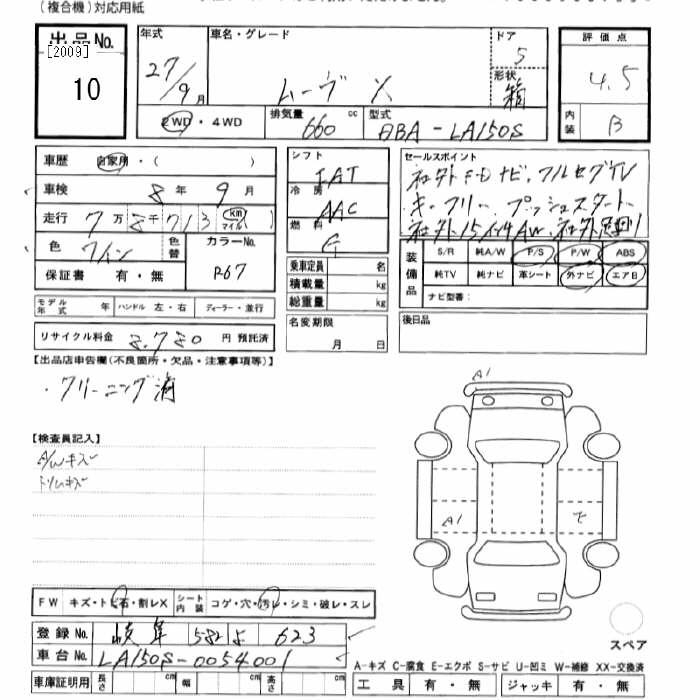 (複合機)対応用紙
出品No.
[2009]
10
年式
27/9月
車名・グレード
ムーヴ X
ドア
5
形状
箱
評価点
4.5
2WD・4WD
排気量
660 cc
型式
DBA-LA150S
内装
B
車歴 自家用・( )
車検 8年 9月
走行 7万8千713 km マイル )
色 ワイン 色替
カラーNo.
R67
保証書 有・無
シフト
IAT
冷房
AAC
燃料
G
セールスポイント
社外F-Dナビ、フルセグTV
キーフリー プッシュスタート
社外15インチAW、
装備品
S/R 純A/W P/S P/W ABS
純TV 純ナビ 革シート 外ナビ エアB
ナビ型番:
乗車定員 名
積載量 kg
総重量 kg
モデル年式 年 ハンドル 左・右 ディーラー・並行
名変期限
月 日
後日品
リサイクル料金 8,780 円 預託済
【出品店申告欄(不良箇所・欠品・注意事項等)】
・クリーニング済
【検査員記入】
A/Wキズ
トリムキズ
A1
A1
FW キズ・トビ石・割レX シート内装 コゲ・穴・汚レ・シミ・破レ・スレ
登録No. 岐阜 582 よ 623
車台No. LA150S-0054001
車庫証明用 長さ cm 幅 cm 高さ cm
スペア
A-キズ C-腐食 E-エクボ S-サビ U-凹ミ W-補修 XX-交換済
工具 有・無 ジャッキ 有・無